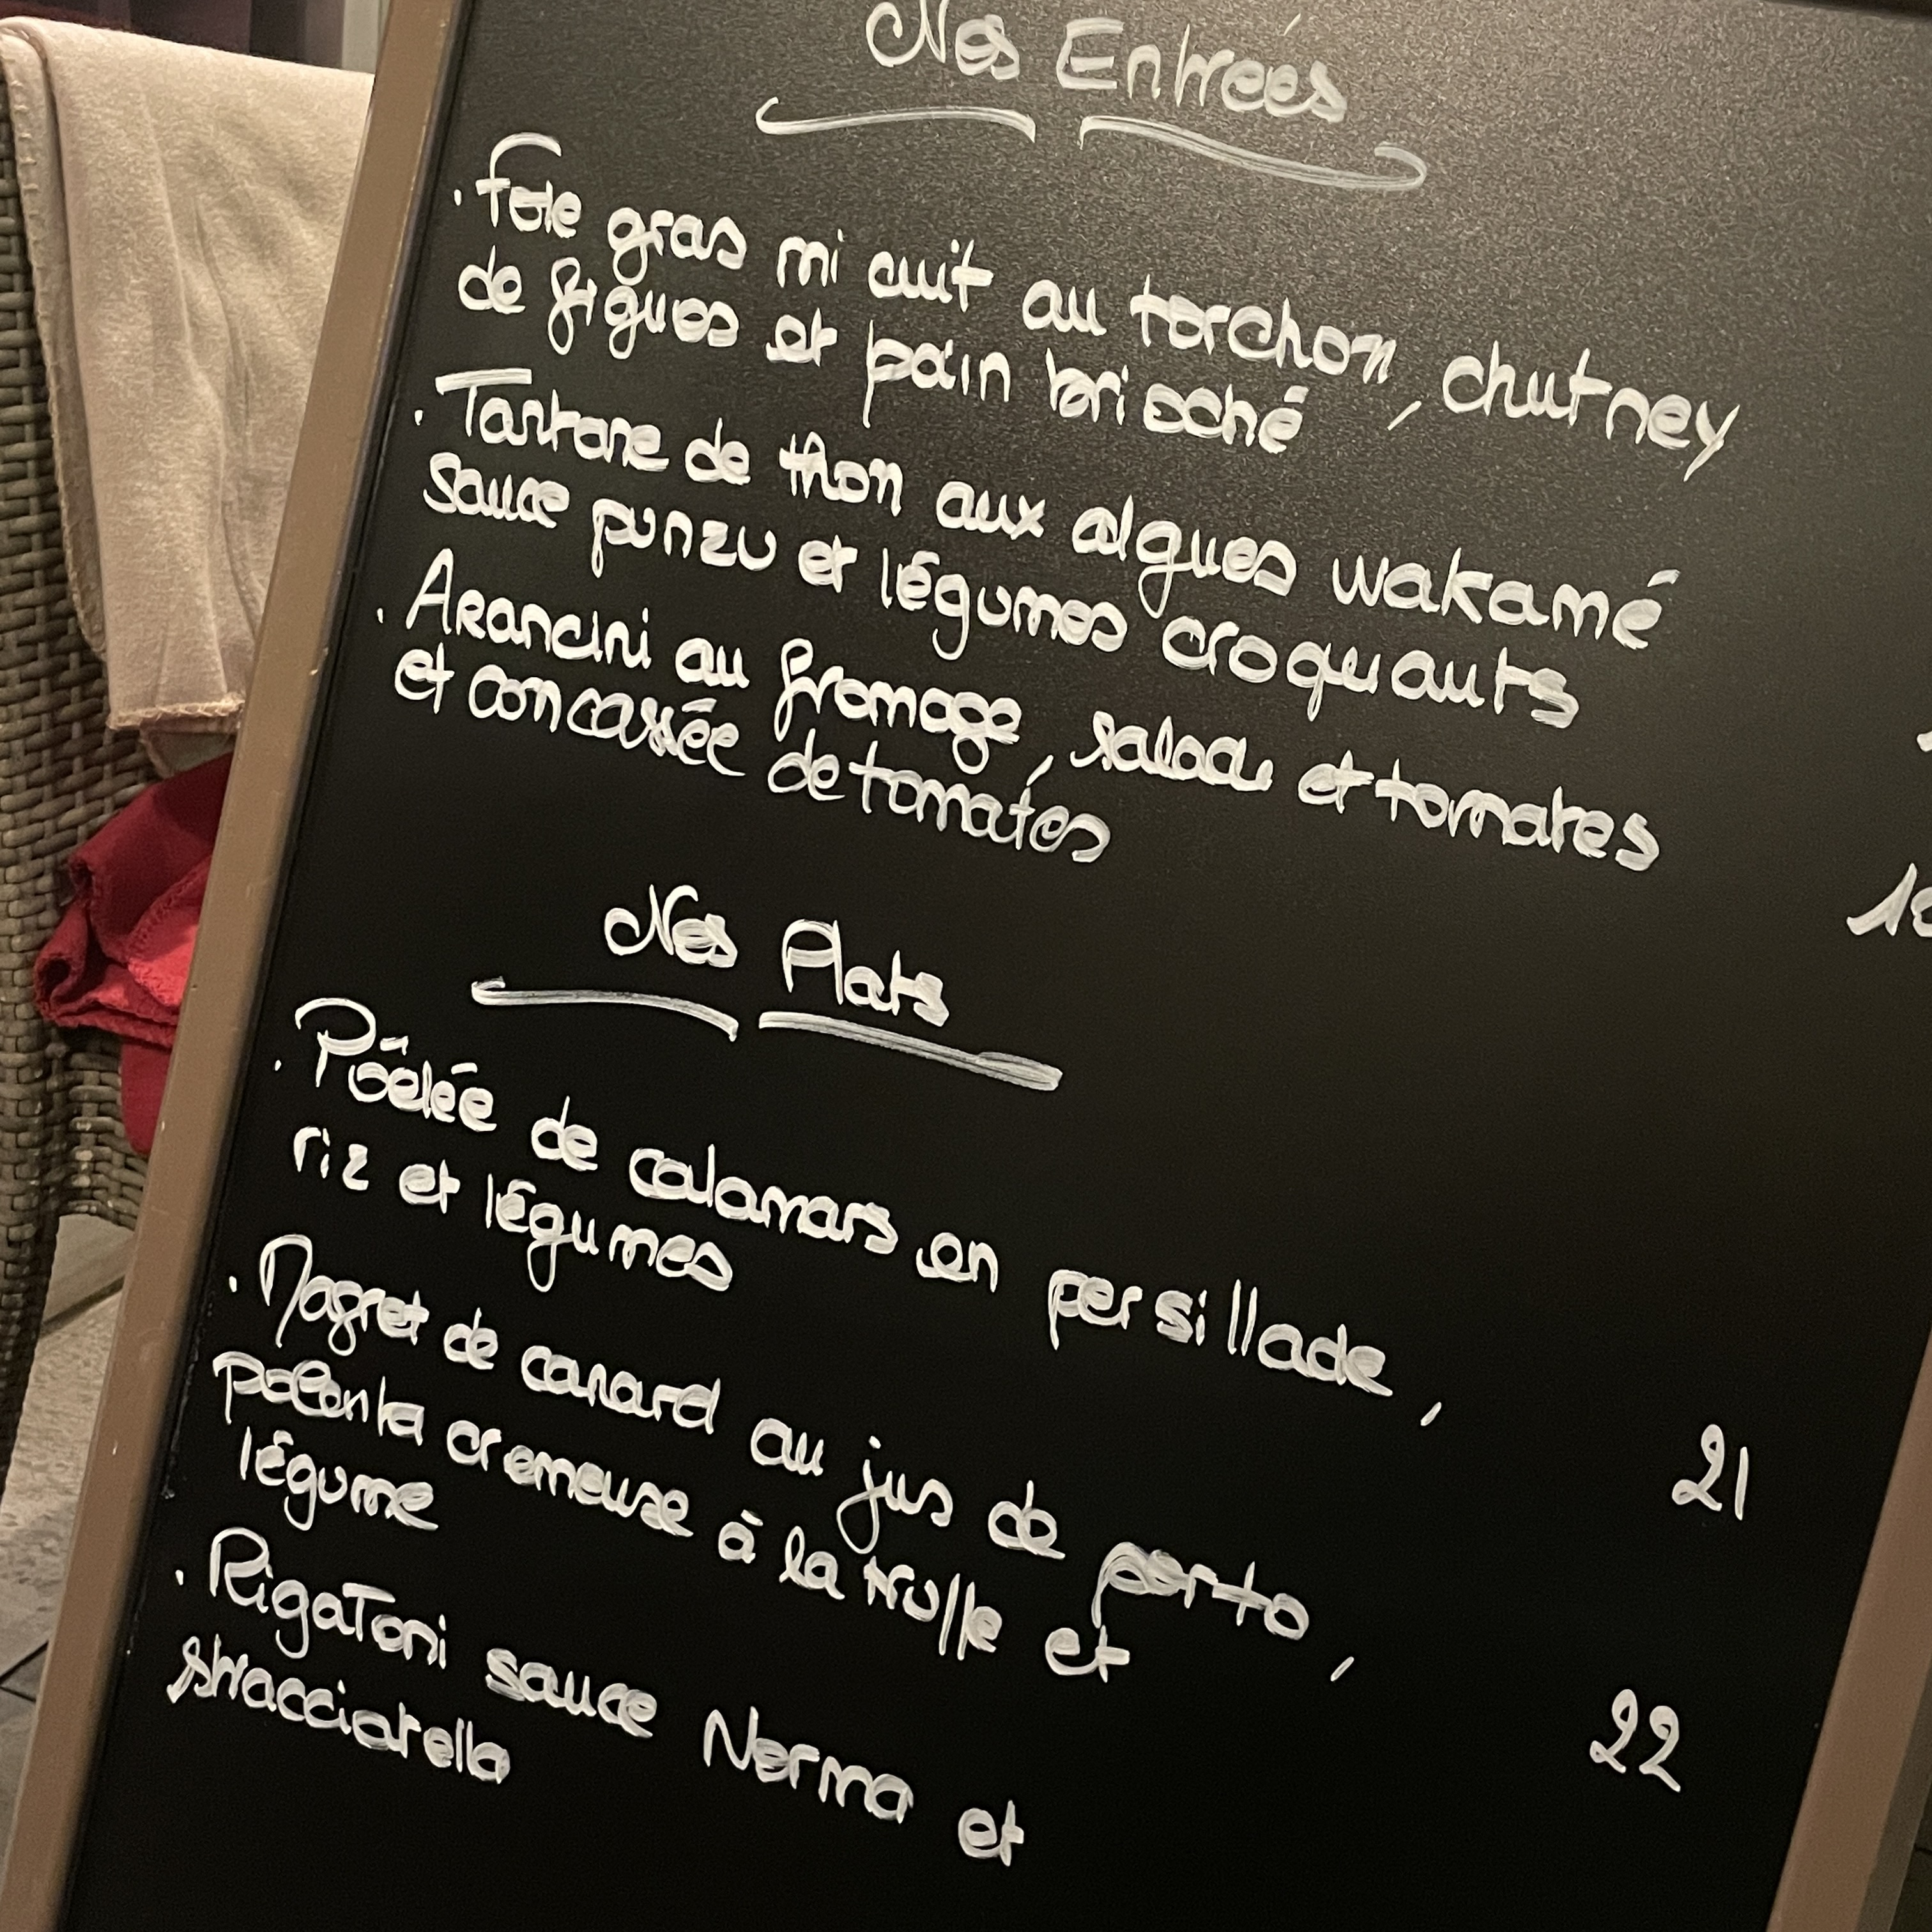 Nos Entrées
. Foie gras mi cuit au torchon, chutney
de figues et pain brioché
. Tartare de thon aux algues wakamé
sauce punzu et légumes croquants
. Arancini au fromage, salade et tomates
et concassée de tomates
Nos Plats
. Pôelée de calamars en persillade,
riz et légumes 21
. Magret de canard au jus de porto,
polenta cremeuse à la truffe et
légume 22
. Rigatoni sauce Norma et
stracciatella